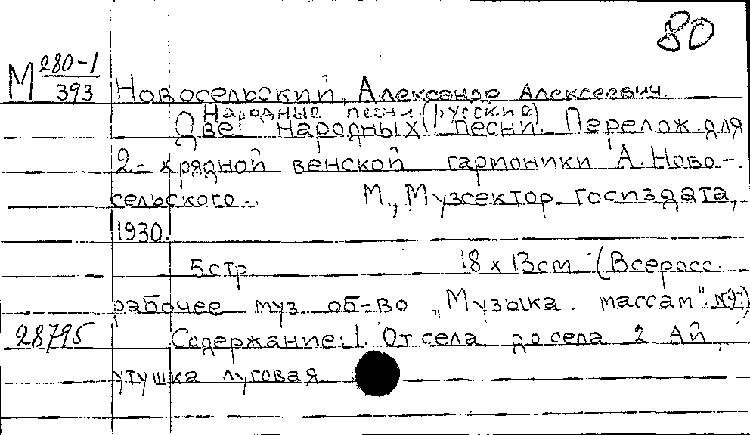 80
М 280-1/393
Новосельский, Александр Алексеевич.
Народные песни (русские)
Две народных песни. Перелож. для
2-х рядной венской гармоники А. Ново-
сельского. М., Музсектор Госиздата,
1930.
5 стр. 18 x 13 см. (Всеросс.
рабочее муз. об-во „Музыка массам".
28795 Содержание: 1. От села до села 2 Ай,
утушка луговая